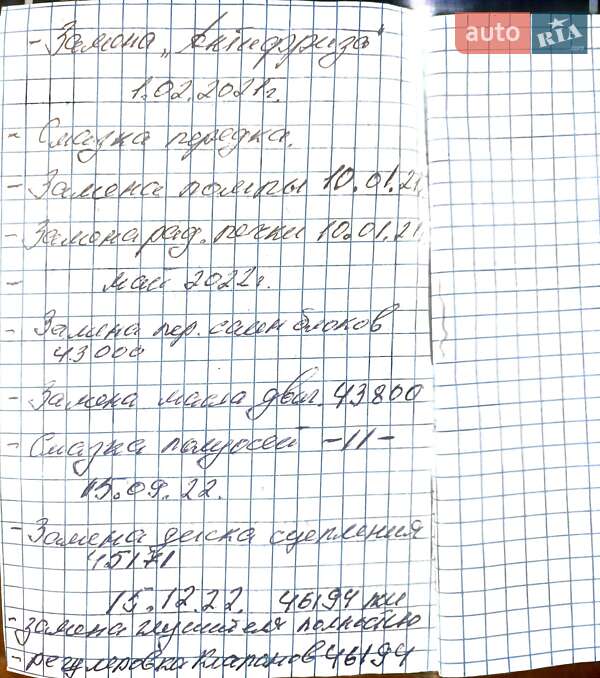 auto RIA
- Замена „Антифриза"
1.02.2021г.
- Смазка передка.
- Замена помпы 10.01.21.
- Замена рад. печки 10.01.21.
- май 2022г.
- Замена пер. сален блоков
43000
- Замена масла двиг. 43800
- Смазка полуосей -11-
15.09.22.
- Замена диска сцепления
45171
15.12.22. 46194 км
- замена глушителя полностью
- регулеровка клапанов 46194